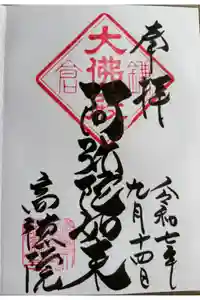 奉拝
令和七年
九月十四日
阿弥陀如来
高徳院
大佛殿
鎌倉